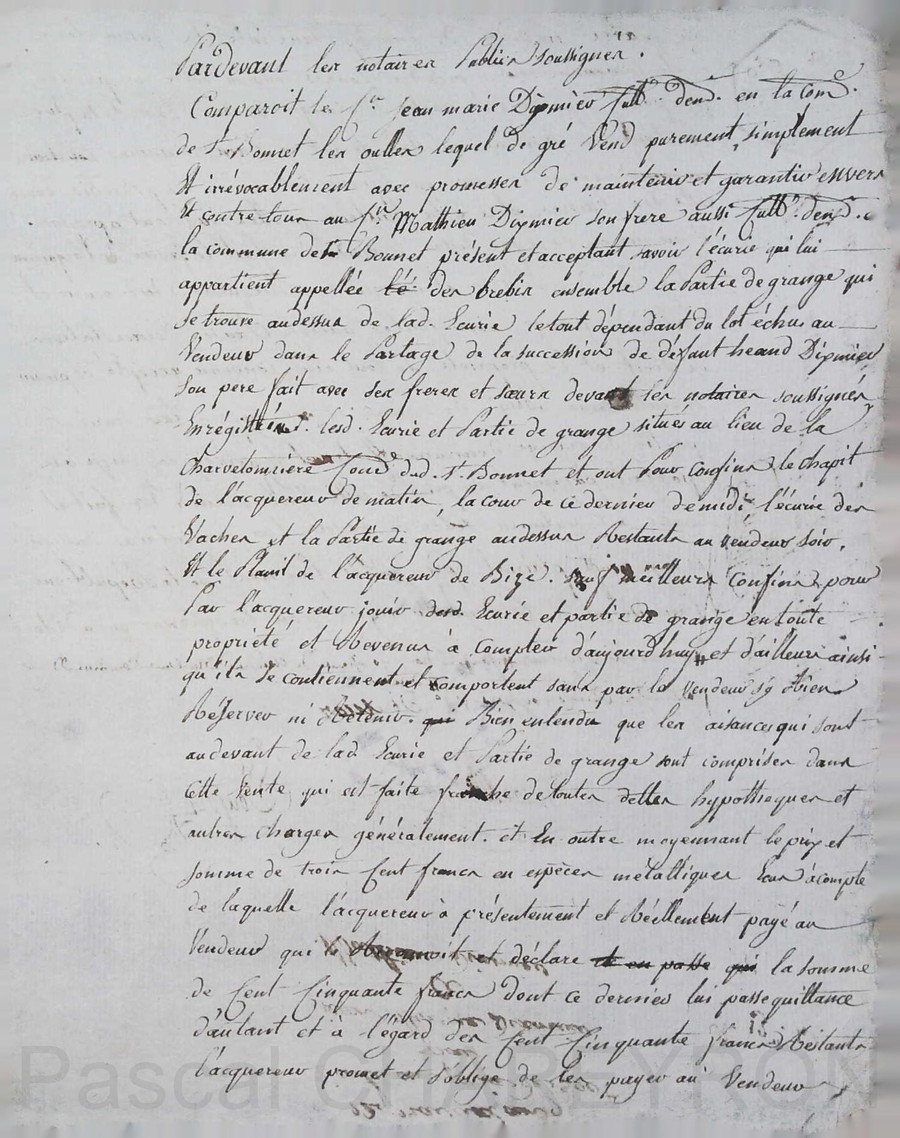 Pardevant les notaires Publics soussignés.
Comparoit le Sr. Jean marie Digmier cultr. demt. en la Come.
de St. Bonnet les oulles lequel de gré Vend purement, simplement
Et irrévocablement avec promesses de maintenir et garantir envers
Et contre tous au Sr. Mathieu Digmier son frere aussi cultr. demt. en
la commune de St. Bonnet présent et acceptant savoir l'écurie qui lui
appartient appellée des brebis ensemble la Partie de grange qui
se trouve audessus de lad. Ecurie le tout dépendant du lot échu au
Vendeur dans le Partage de la succession de défunt Digmier
son pere fait avec ses freres et sœurs devant les notaires soussignés
Enrégistré. lesd. Ecurie et Partie de grange situés au lieu de la
Charvetonnière Come. dud. St. Bonnet et ont Pour confins le chapit
de l'acquereur de matin, la cour de ce dernier de midi, l'écurie des
Vaches et la Partie de grange audessus Restants au vendeur soir,
Et le Plasit de l'acquereur de Bize. sauf meilleurs confins, pour
Par l'acquereur jouir desd. Ecurie et partie de grange en toute
propriété, et Revenus à compter d'aujourd'huy et d'ailleurs ainsi
qu'ils se contiennent et comportent sans par le vendeur s'y Rien
Réserver ni Retenir. Bien entendu que les aisances qui sont
audevant de lad. Ecurie et Partie de grange sont comprises dans
cette Vente qui est faite franche de toutes dettes hypotheques et
autres charges généralement. et En outre moyennant le prix et
somme de trois Cent francs en espèces métalliques Sur à compte
de laquelle l'acquereur à présentement et Réellement payé au
Vendeur qui le Reconnoit et déclare la somme
de Cent Cinquante francs dont ce dernier lui passe quittance
d'autant et à l'égard des Cent Cinquante francs Restants
l'acquereur promet et s'oblige de les payer au Vendeur
Pascal CHAREYRON